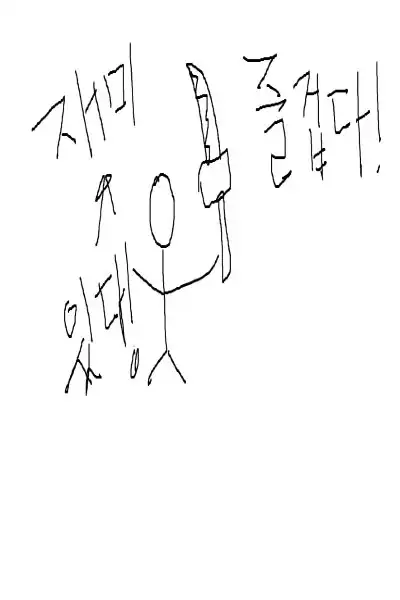 재미
있댕
즐겁다!